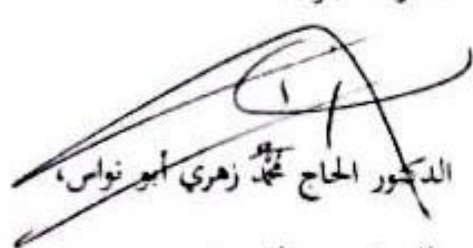 الدكتور الحاج محمد زهري أبو نواس،